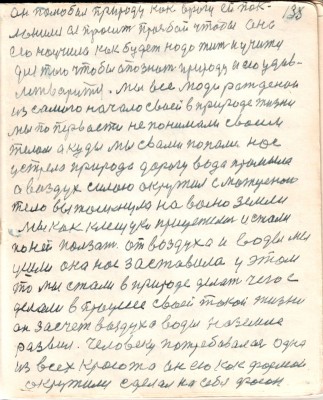 он полюбил природу как другу ей пок-
лонился просит просьбой чтобы она 138
его научила как будет надо жить и учить
для того чтобы опознать природу и ею удов-
летварить. Мы все люди рожденаи
из самого начало своей в природе жизни
мы по первости не понимали своим
телом а куды мы с вами попали нас
устрела природа дорогу вода промыла
а воздух силою окружил с матушкой
тело вытолкнула на волю земли
мы как клещуки прицепились и стали
по ней ползать. от воздуха и воды мы
ушли она нас заставила у этом
то мы стали в природе делать чего с
делали в процессе своей такой жизни
он за счет воздуха воды на земле
развил. Человеку потребовался одна
из всех красота он ею как формой
окружили сделал на себя фасон